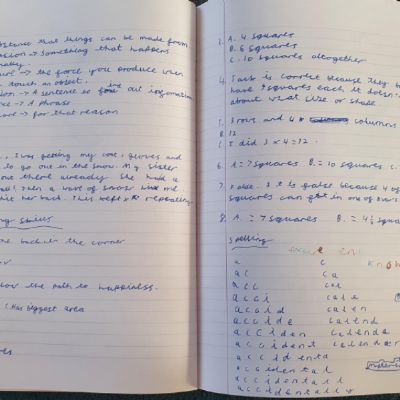 bstance that things can be made from
sion → Something that happens
nally.
ure → the force you produce when
touch an object.
ion → A sentence so find out information
se → A phrase
ore → for that reason
I was getting my coat, gloves and
to go out in the snow. My sister
out there already. She had a
ball. Then a wave of snow hit me.
hit her back. This kept repeating
ng skills
me back in the corner
ow the path to happiness.
(Has biggest area
1. A. 4 squares
B. 6 squares
C. 10 squares altogether
4. Jack is correct because they both
have 9 squares each it doesn't
about what size or shape
5. 3 rows and 4 columns
B. 12
C. I did 3 x 4 = 12.
6. A = 7 squares B. = 10 squares C.
7. False. It is false because 4
squares can get in one of
8. A. = 7 squares B. = 4½ squares
Spelling
a c know
ac ca
acc cal
acci cale
accid calen
accide calend
acciden calenda
accident calendar
accidenta
accidental
accidentall
accidentally